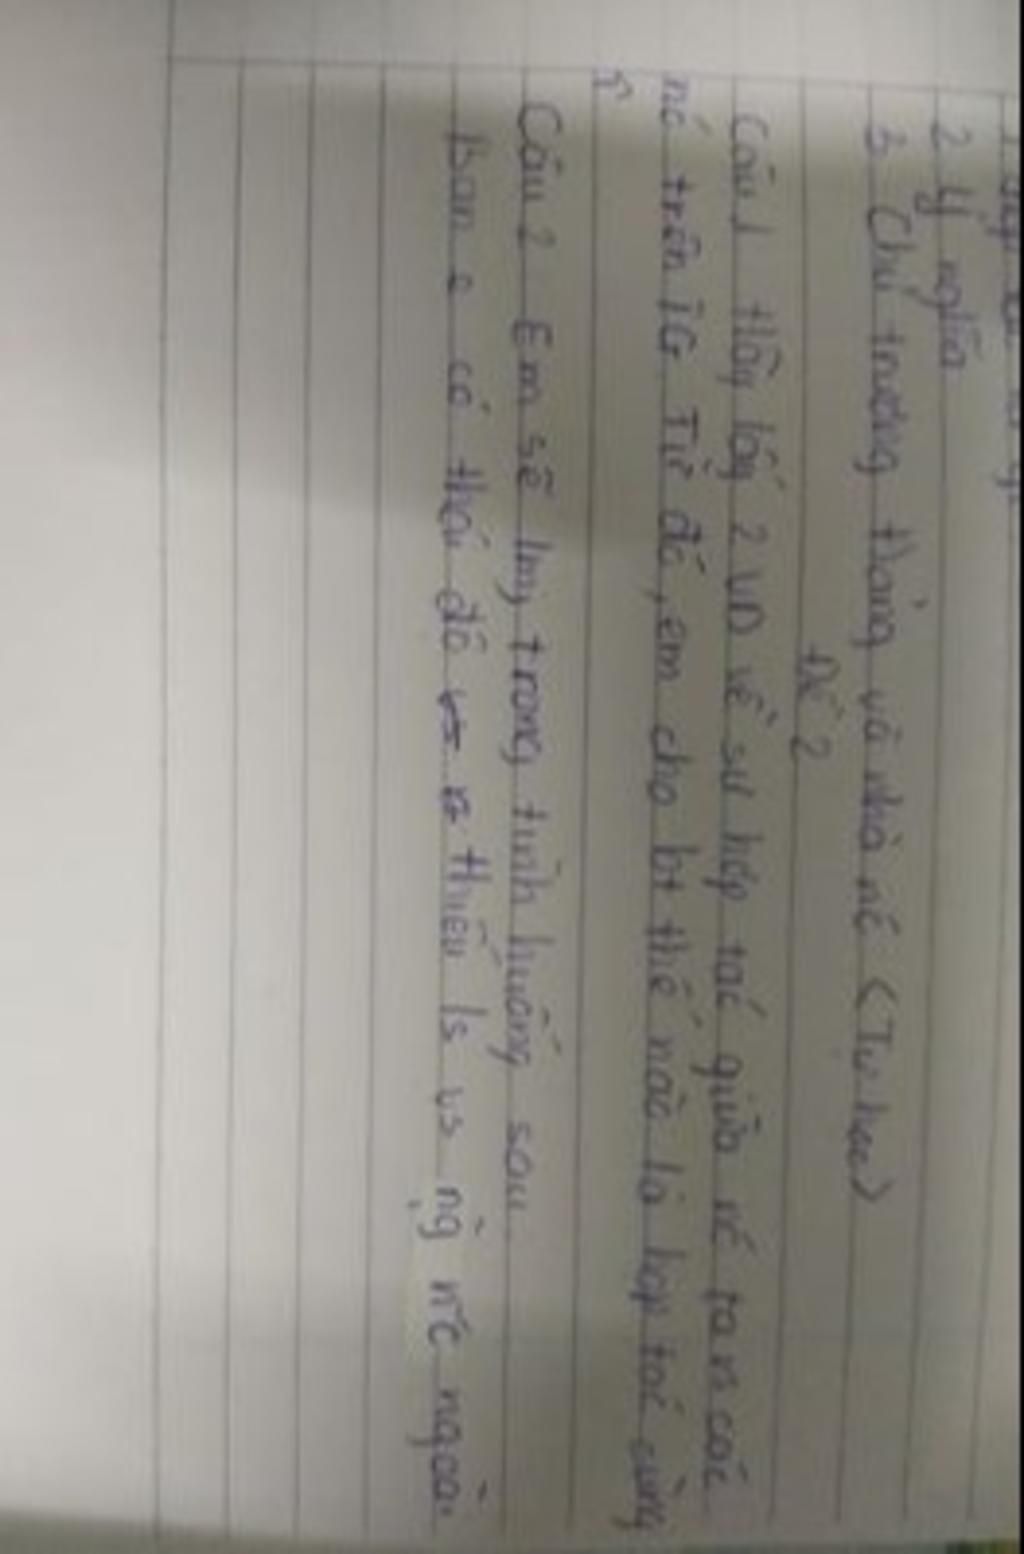 2 Ý nghĩa
3. Chủ trương Đảng và nhà nc (Tự học)
Đề 2
Câu 1 Hãy lấy 2 VD về sự hợp tác giữa nc ta vs các
nc trên TG Từ đó, em cho bt thế nào là hợp tác cùng
Câu 2 Em sẽ lm j trong tình huống sau
bạn e có thái độ thiếu ls vs ng nc ngoài